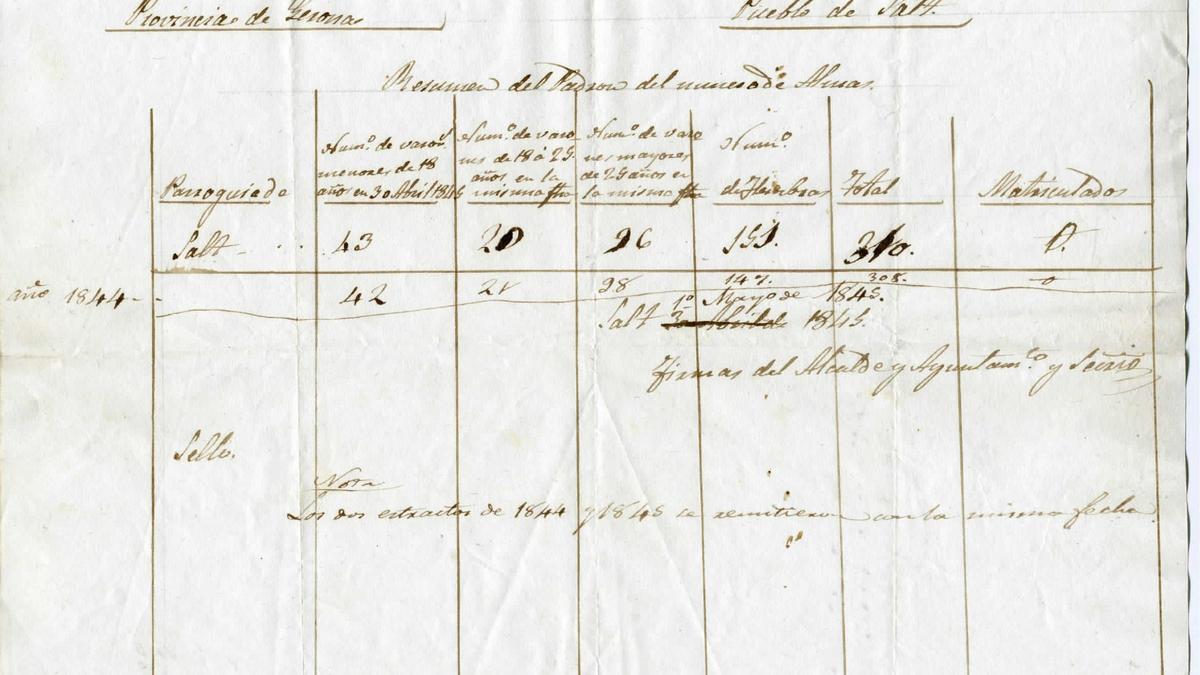 Provincia de Gerona
Pueblo de Salt.
Resumen del Padron del numero de Almas.
Parroquia de
Num.º de varon.s
menores de 18
años en 30 Abril 1845
Num.º de varo
nes de 18 á 25.
años en la
misma fha
Num.º de varo
nes mayores
de 25 años en
la misma fha
Num.º
de Hembras
Total
Matriculados
Salt 43 20 96 151. 310. 0.
año 1844 - 42 21 98 147. 308. 0
1º Mayo de 1845.
Salt 30 Abril de 1845.
Firmas del Alcalde y Ayuntam.to y Seorio
Sello.
Nota
Los dos estractos de 1844 y 1845 se remitieron con la misma fecha